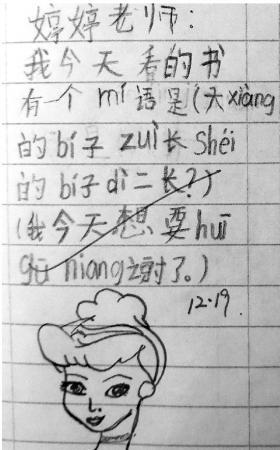 婷婷老师:
我今天看的书
有一个mí语是(大xiàng
的bí子zuì长Shéi
的bí子dì二长?)
(我今天想要huī
gū niang谢了。)
12.19.